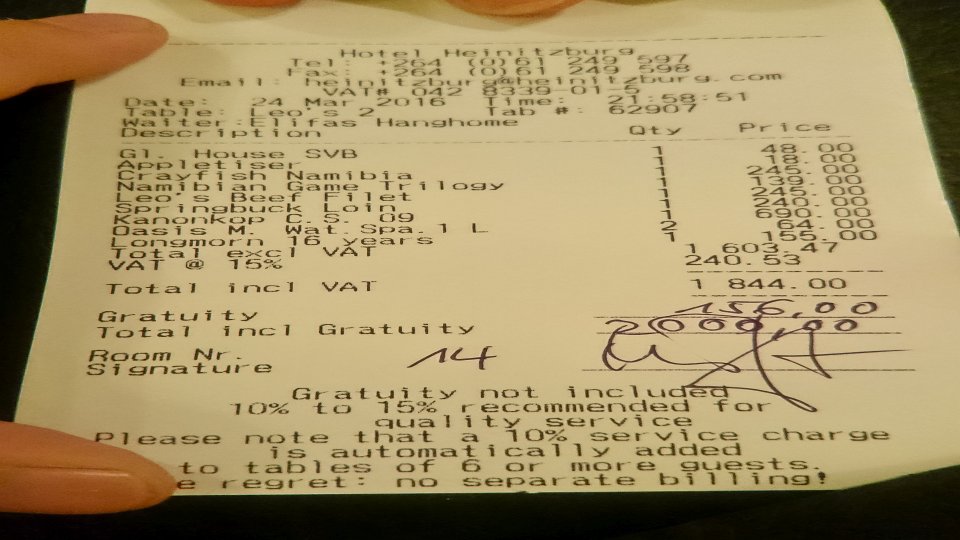 Hotel Heinitzburg
Tel: +264 (0)61 249 597
Fax: +264 (0)61 249 598
Email: heinitzburg@heinitzburg.com
VAT# 042 8339-01-5
Date: 24 Mar 2016 Time: 21:58:51
Table: Leo's 2 Tab #: 62907
Waiter: Elifas Hanghome
Description Qty Price
Gl. House SVB 1 48.00
Appletiser 1 18.00
Crayfish Namibia 1 245.00
Namibian Game Trilogy 1 139.00
Leo's Beef Filet 1 245.00
Springbuck Loin 1 240.00
Kanonkop C.S. 09 1 690.00
Oasis M. Wat.Spa.1 L 2 64.00
Longmorn 16 years 1 155.00
Total excl VAT 1 603.47
VAT @ 15% 240.53
Total incl VAT 1 844.00
Gratuity 156,00
Total incl Gratuity 2000,00
Room Nr. 14
Signature
Gratuity not included
10% to 15% recommended for
quality service
Please note that a 10% service charge
is automatically added
to tables of 6 or more guests.
e regret: no separate billing!